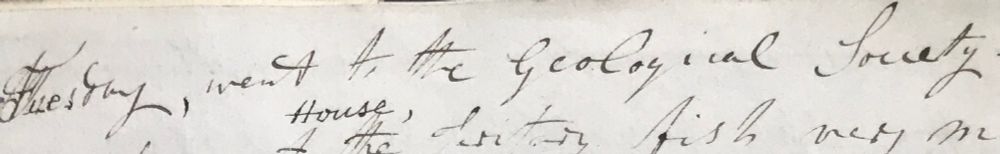 Tuesday, went to the Geological Society
House,
the fish very